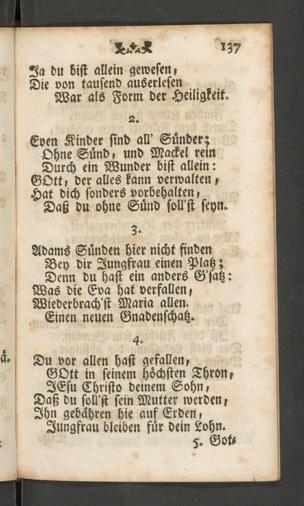 137
Ja du bist allein gewesen,
Die von tausend auserlesen
War als Form der Heiligkeit.
2.
Even Kinder sind all' Sünder;
Ohne Sünd, und Mackel rein
Durch ein Wunder bist allein:
GOtt, der alles kann verwalten,
Hat dich sonders vorbehalten,
Daß du ohne Sünd soll'st seyn.
3.
Adams Sünden hier nicht finden
Bey dir Jungfrau einen Platz;
Denn du hast ein anders G'satz:
Was die Eva hat verfallen,
Wiederbrach'st Maria allen.
Einen neuen Gnadenschatz.
4.
Du vor allen hast gefallen,
GOtt in seinem höchsten Thron,
JEsu Christo deinem Sohn,
Daß du soll'st sein Mutter werden,
Ihn gebähren hie auf Erden,
Jungfrau bleiben für dein Lohn.
5. Got-